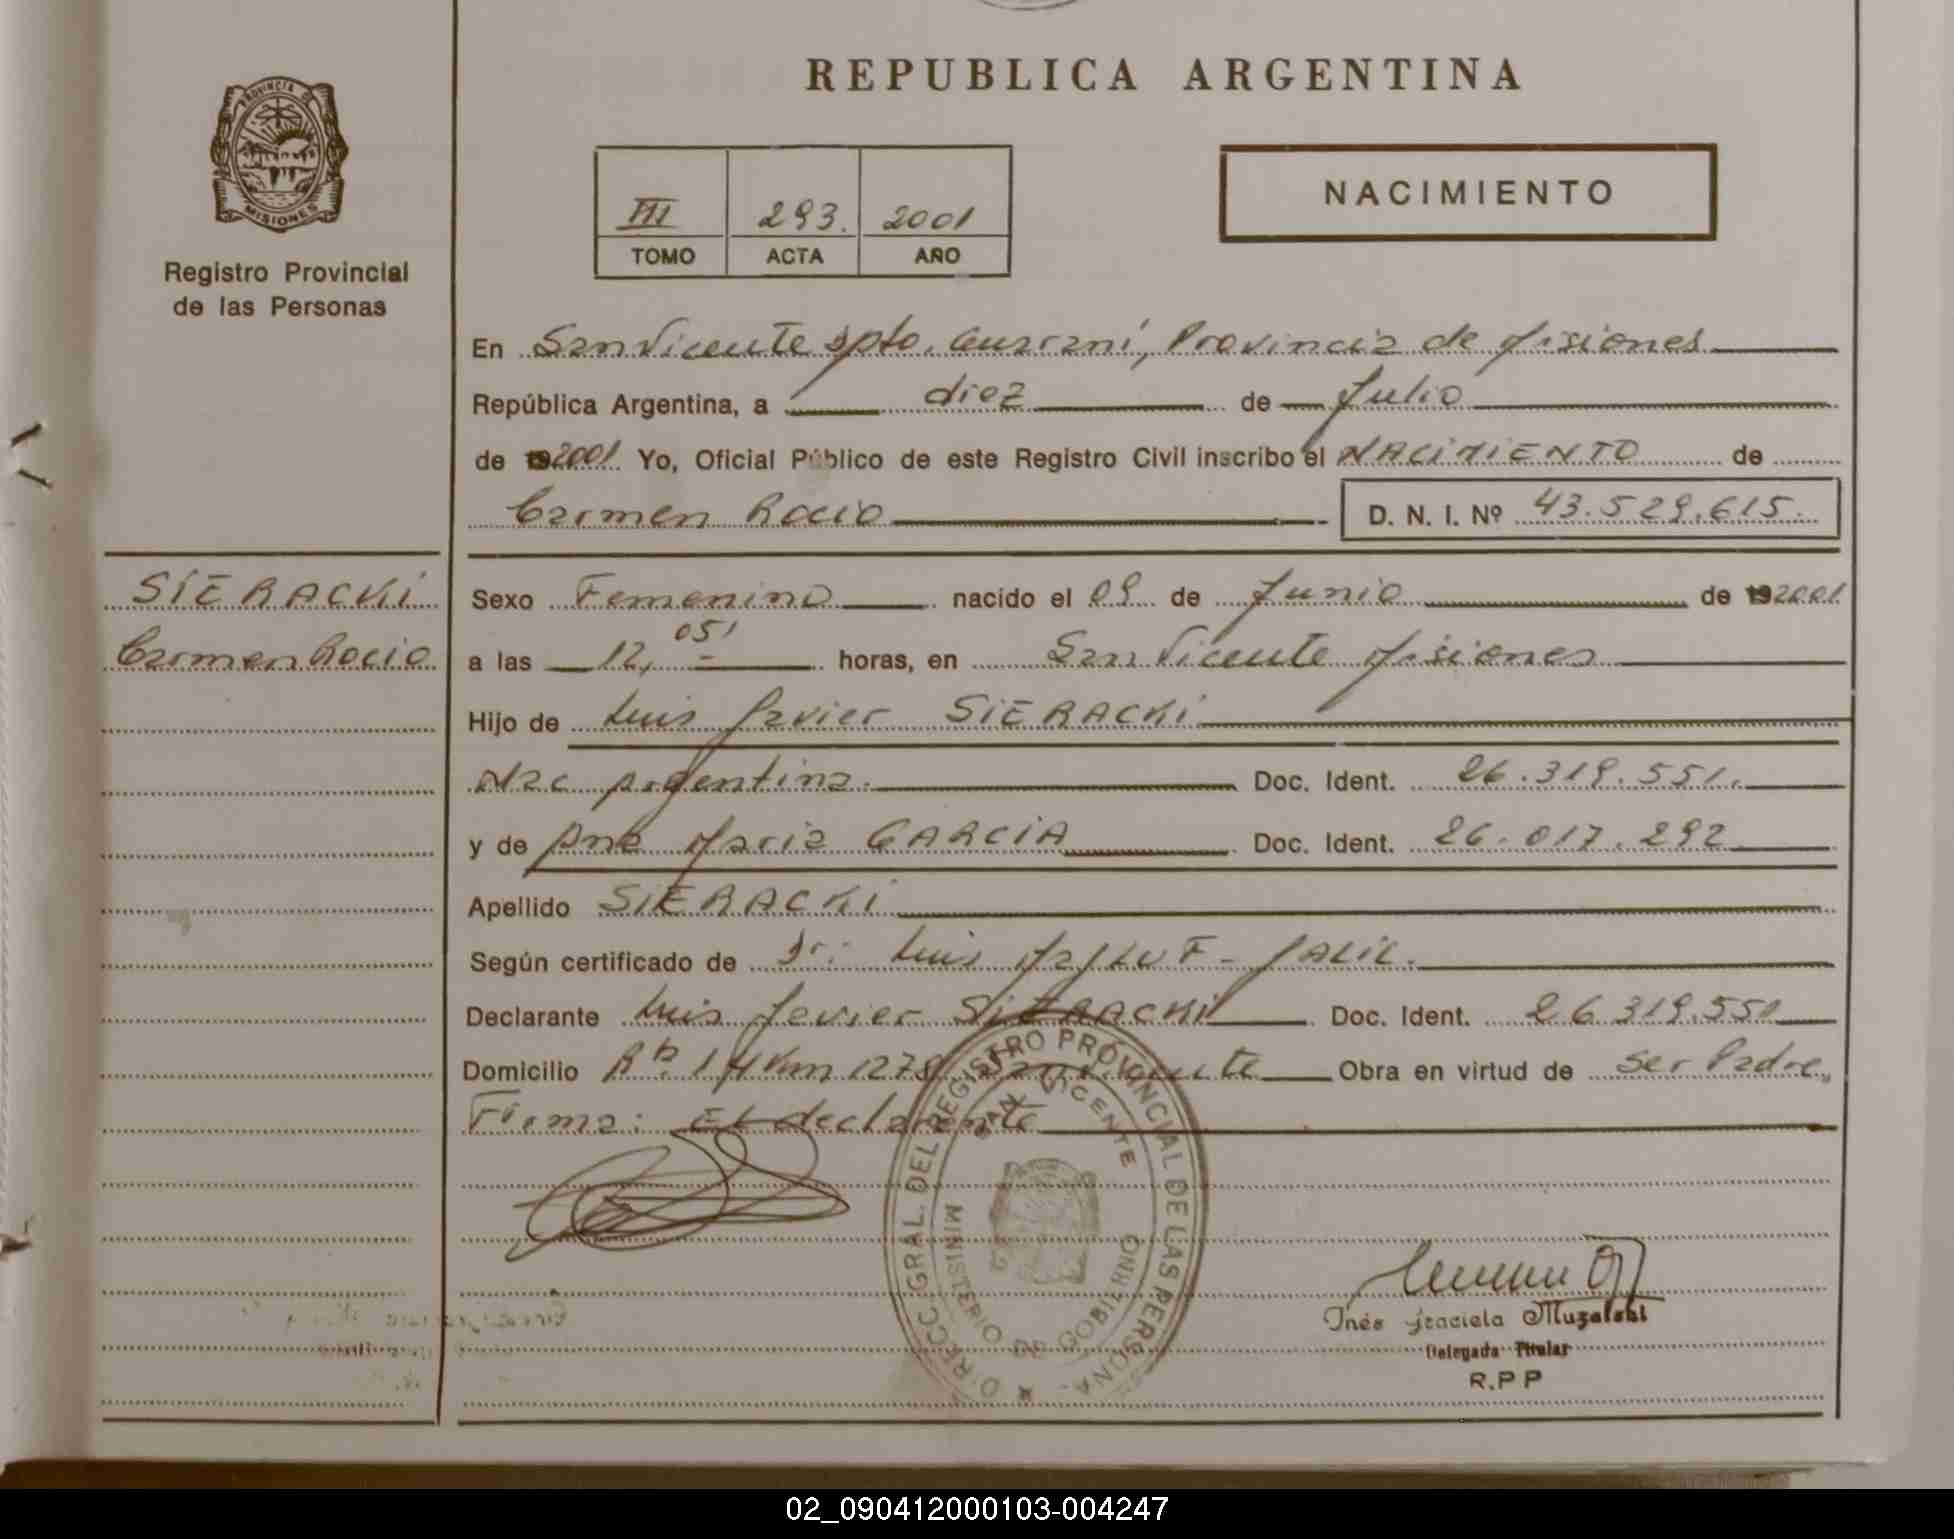 REPUBLICA ARGENTINA
PROVINCIA DE
MISIONES
Registro Provincial
de las Personas
III 293. 2001
TOMO ACTA AÑO
NACIMIENTO
En San Vicente Dpto. Guaraní, Provincia de Misiones
República Argentina, a diez de Julio
de 192001 Yo, Oficial Público de este Registro Civil inscribo el NACIMIENTO de
Carmen Rocio D. N. I. Nº 43.529.615.
SIERACKI
Carmen Rocio
Sexo Femenino nacido el 09 de Junio de 192001
a las 12,05' horas, en San Vicente Misiones
Hijo de Luis Javier SIERACKI
Nac Argentina. Doc. Ident. 26.319.551.
y de Ana Maria GARCIA Doc. Ident. 26.017.292
Apellido SIERACKI
Según certificado de Dr. Luis F. JALIL.
Declarante Luis Javier SIERACKI Doc. Ident. 26.319.551
Domicilio Rta. 14 Km 1278 San Vicente Obra en virtud de Ser Padre,
Firma: El declarante
DIRECC. GRAL. DEL REGISTRO PROVINCIAL DE LAS PERSONAS
SAN VICENTE
MINISTERIO DE GOBIERNO
Inés Graciela Muzalski
Delegada Titular
R.P.P
02_090412000103-004247